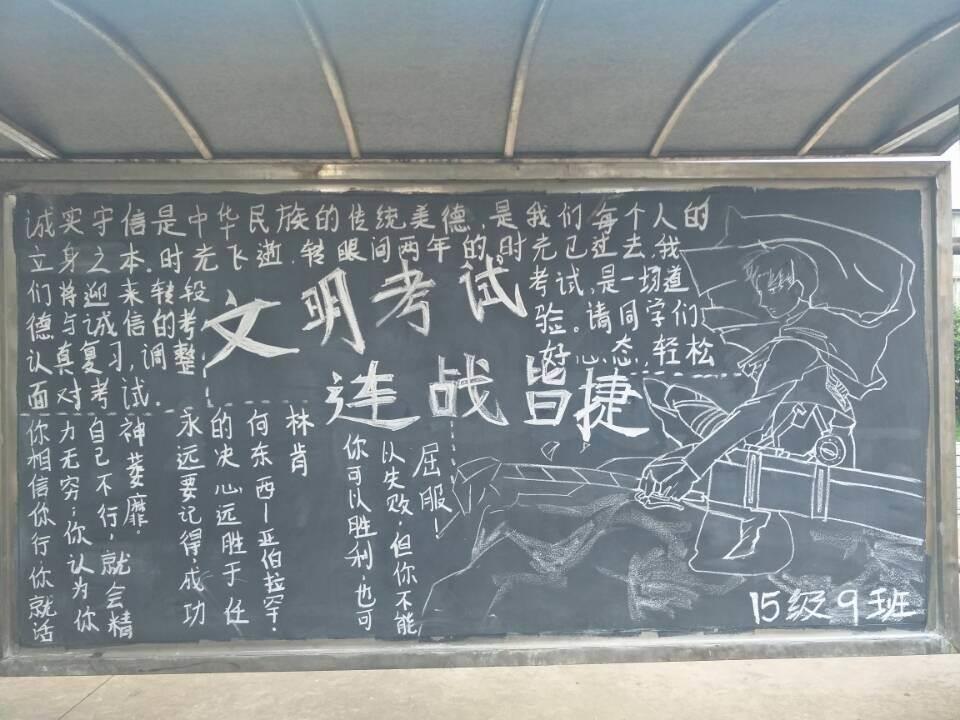 诚实守信是中华民族的传统美德,是我们每个人的
立身之本.时光飞逝.转眼间两年的时光已过去,我
们将迎来转段考试,是一场道
德与诚信的考验。请同学们
认真复习,调整好心态,轻松
面对考试.
文明考试
连战皆捷
你相信你行你就活
力无穷;你认为你
自己不行,就会精
神萎靡.
永远要记得,成功
的决心远胜于任
何东西—亚伯拉罕·
林肯
你可以胜利,也可
以失败,但你不能
屈服!
15级9班